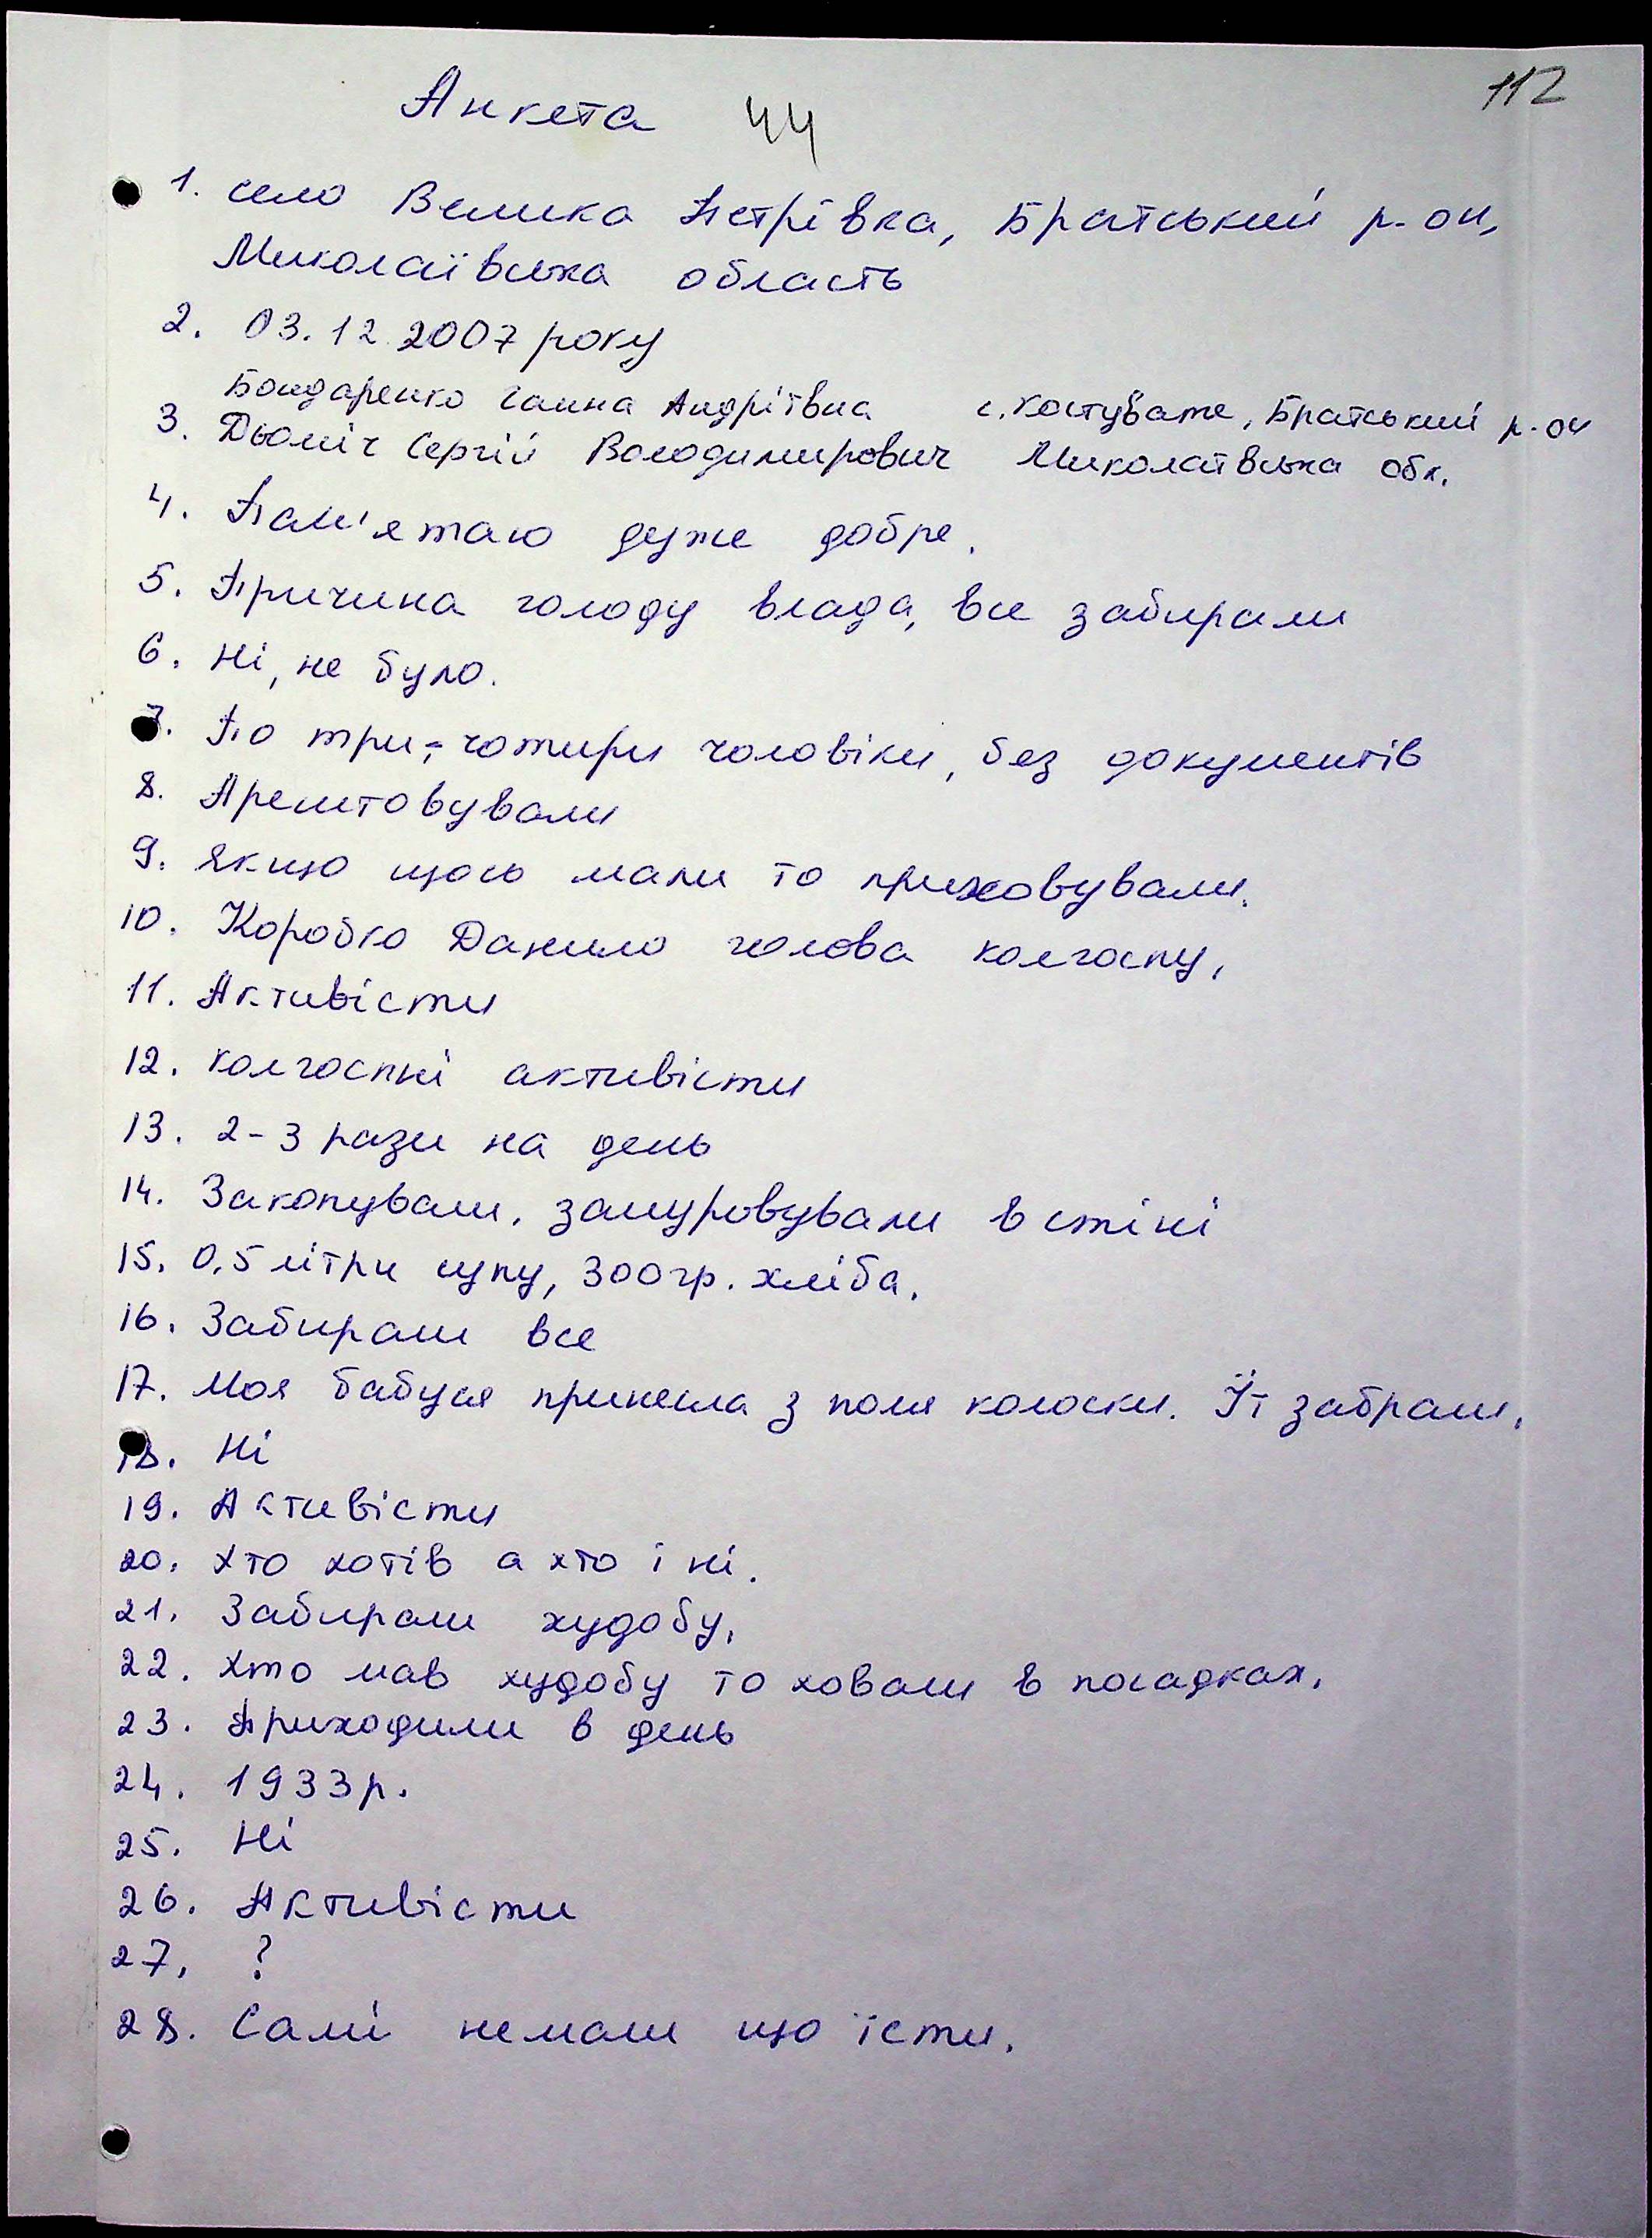 112
Анкета 44
1. село Велика Петрівка, Братський р-он,
Миколаївська область
2. 03.12.2007 року
Бондаренко Ганна Андріївна с. Костувате, Братський р-он
3. Дьоміч Сергій Володимирович Миколаївська обл.
4. Пам'ятаю дуже добре.
5. Причина голоду влада, все забирали
6. Ні, не було.
7. По три-чотири чоловіки, без документів
8. Арештовували
9. Якщо щось мали то приховували.
10. Коробко Данило голова колгоспу,
11. Активісти
12. колгоспні активісти
13. 2-3 рази на день
14. Закопували, замуровували в стіні
15. 0,5 літри супу, 300гр. хліба.
16. Забирали все
17. Моя бабуся принесла з поля колоски. Її забрали.
18. Ні
19. Активісти
20. Хто хотів а хто і ні.
21. Забирали худобу.
22. Хто мав худобу то ховали в посадках.
23. Приходили в день
24. 1933р.
25. Ні
26. Активісти
27. ?
28. Самі немали що їсти.